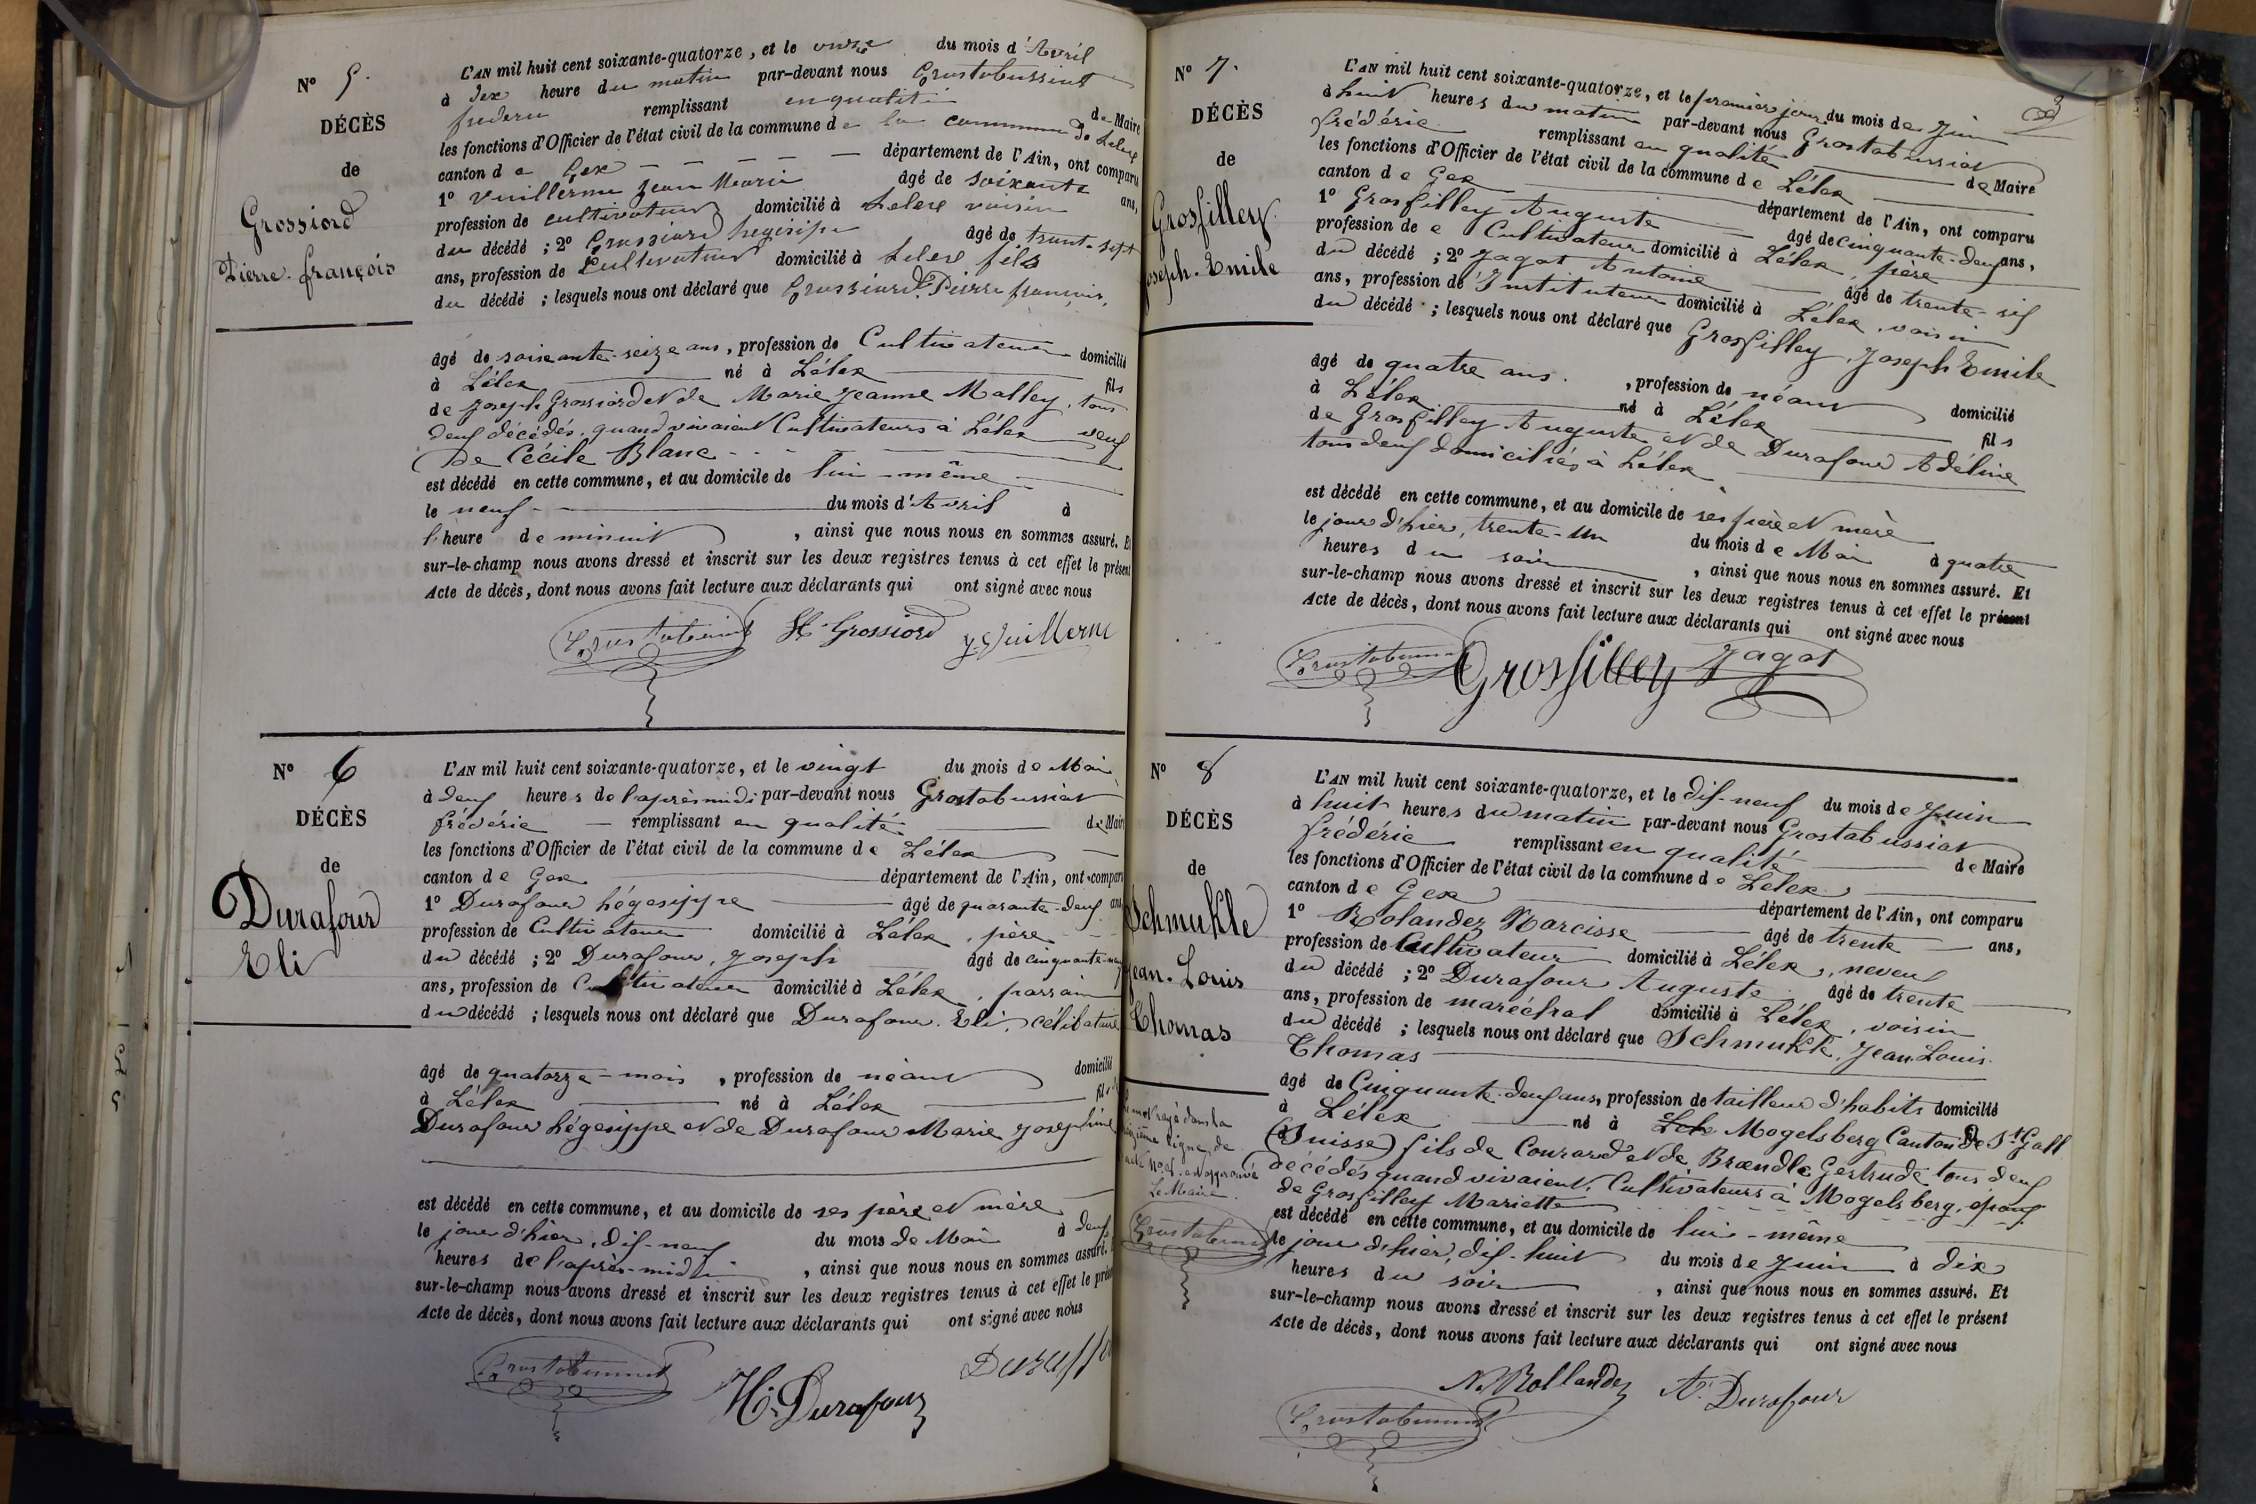 N° 5.
DÉCÈS
de
Grossiord
Pierre-françois
L'AN mil huit cent soixante-quatorze, et le onze du mois d'Avril
à dix heure du matin par-devant nous Grostabussiat
frederic remplissant en qualité de Maire
les fonctions d'Officier de l'état civil de la commune de la commune de Lelex
canton de Gex département de l'Ain, ont comparu
1° Vuillerme Jean Marie âgé de soixante ans,
profession de cultivateur domicilié à Lelex voisin
du décédé ; 2° Grossiord hegesipe âgé de trente-sept
ans, profession de Cultivateur domicilié à Lelex fils
du décédé ; lesquels nous ont déclaré que Grossiord Pierre françois,
âgé de soixante-seize ans, profession de Cultivateur domicilié
à Lélex né à Lélex fils
de Joseph Grossiord et de Marie Jeanne Malley, tous
deux décédés, quand vivaient Cultivateurs à Lélex veuf
de Cécile Blanc
est décédé en cette commune, et au domicile de lui-même
le neuf du mois d'Avril à
l'heure de minuit, ainsi que nous nous en sommes assuré. Et
sur-le-champ nous avons dressé et inscrit sur les deux registres tenus à cet effet le présent
Acte de décès, dont nous avons fait lecture aux déclarants qui ont signé avec nous
Grostabussiat H. Grossiord J. Vuillerme
N° 6
DÉCÈS
de
Durafour
Eli
L'AN mil huit cent soixante-quatorze, et le vingt du mois de Mai
à deux heures de l'après midi par-devant nous Grostabussiat
frédéric remplissant en qualité de Maire
les fonctions d'Officier de l'état civil de la commune de Lélex
canton de Gex département de l'Ain, ont comparu
1° Durafour hégesippe âgé de quarante-deux ans
profession de Cultivateur domicilié à Lélex, père
du décédé ; 2° Durafour, Joseph âgé de cinquante-neuf
ans, profession de Cultivateur domicilié à Lélex, parrain
du décédé ; lesquels nous ont déclaré que Durafour Eli, célibataire
âgé de quatorze-mois, profession de néant domicilié
à Lélex né à Lélex fils de
Durafour hégesippe et de Durafour Marie Josephine
est décédé en cette commune, et au domicile de ses père et mère
le jour d'hier, dix-neuf du mois de Mai à deux
heures de l'après-midi, ainsi que nous nous en sommes assuré.
sur-le-champ nous avons dressé et inscrit sur les deux registres tenus à cet effet le présent
Acte de décès, dont nous avons fait lecture aux déclarants qui ont signé avec nous
Grostabussiat H. Durafour Duraffo
3
N° 7.
DÉCÈS
de
Grosfilley
Joseph-Emile
L'AN mil huit cent soixante-quatorze, et le premier jour du mois de Juin
à huit heures du matin par-devant nous Grostabussiat
frédéric remplissant en qualité de Maire
les fonctions d'Officier de l'état civil de la commune de Lélex
canton de Gex département de l'Ain, ont comparu
1° Grosfilley Auguste âgé de cinquante-deux ans,
profession de Cultivateur domicilié à Lélex, père
du décédé ; 2° Jagot Antoine âgé de trente-six
ans, profession de Instituteur domicilié à Lélex, voisin
du décédé ; lesquels nous ont déclaré que Grosfilley, Joseph Emile
âgé de quatre ans., profession de néant domicilié
à Lélex né à Lélex fils
de Grosfilley Auguste et de Durafour Adéline
tous deux domiciliés à Lélex
est décédé en cette commune, et au domicile de ses père et mère
le jour d'hier, trente-un du mois de Mai à quatre
heures du soir, ainsi que nous nous en sommes assuré. Et
sur-le-champ nous avons dressé et inscrit sur les deux registres tenus à cet effet le présent
Acte de décès, dont nous avons fait lecture aux déclarants qui ont signé avec nous
Grostabussiat Grosfilley Jagot
N° 8
DÉCÈS
de
Schmukle
Jean-Louis
Thomas
L'AN mil huit cent soixante-quatorze, et le dix-neuf du mois de Juin
à huit heures du matin par-devant nous Grostabussiat
frédéric remplissant en qualité de Maire
les fonctions d'Officier de l'état civil de la commune de Lélex
canton de Gex département de l'Ain, ont comparu
1° Rolandez Narcisse âgé de trente ans,
profession de Cultivateur domicilié à Lélex, neveu
du décédé ; 2° Durafour Auguste âgé de trente
ans, profession de maréchal domicilié à Lélex, voisin
du décédé ; lesquels nous ont déclaré que Schmukle, Jean Louis
Thomas
âgé de Cinquante-deux ans, profession de tailleur d'habits domicilié
à Lélex né à Lele Mogelsberg Canton de St Gall
(Suisse) fils de Conrard et de Brændle Gertrude tous deux
décédés quand vivaient Cultivateurs à Mogelsberg, époux
de Grosfilley Mariette
est décédé en cette commune, et au domicile de lui-même
le jour d'hier, dix-huit du mois de Juin à dix
heures du soir, ainsi que nous nous en sommes assuré. Et
sur-le-champ nous avons dressé et inscrit sur les deux registres tenus à cet effet le présent
Acte de décès, dont nous avons fait lecture aux déclarants qui ont signé avec nous
mot rayé dans la
ligne de
approuvé
Le Maire
Grostabussiat
N. Rollandez A. Durafour
Grostabussiat